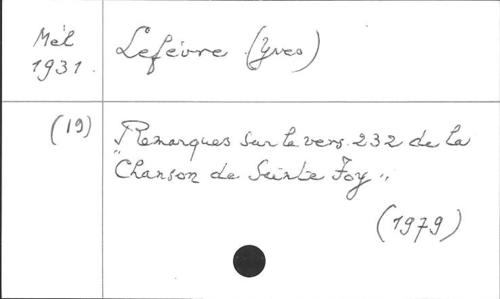 Mél
1931.
Lefévre (Yves)
(19)
Remarques sur le vers 232 de la
"Chanson de Sainte Foy"
(1979)